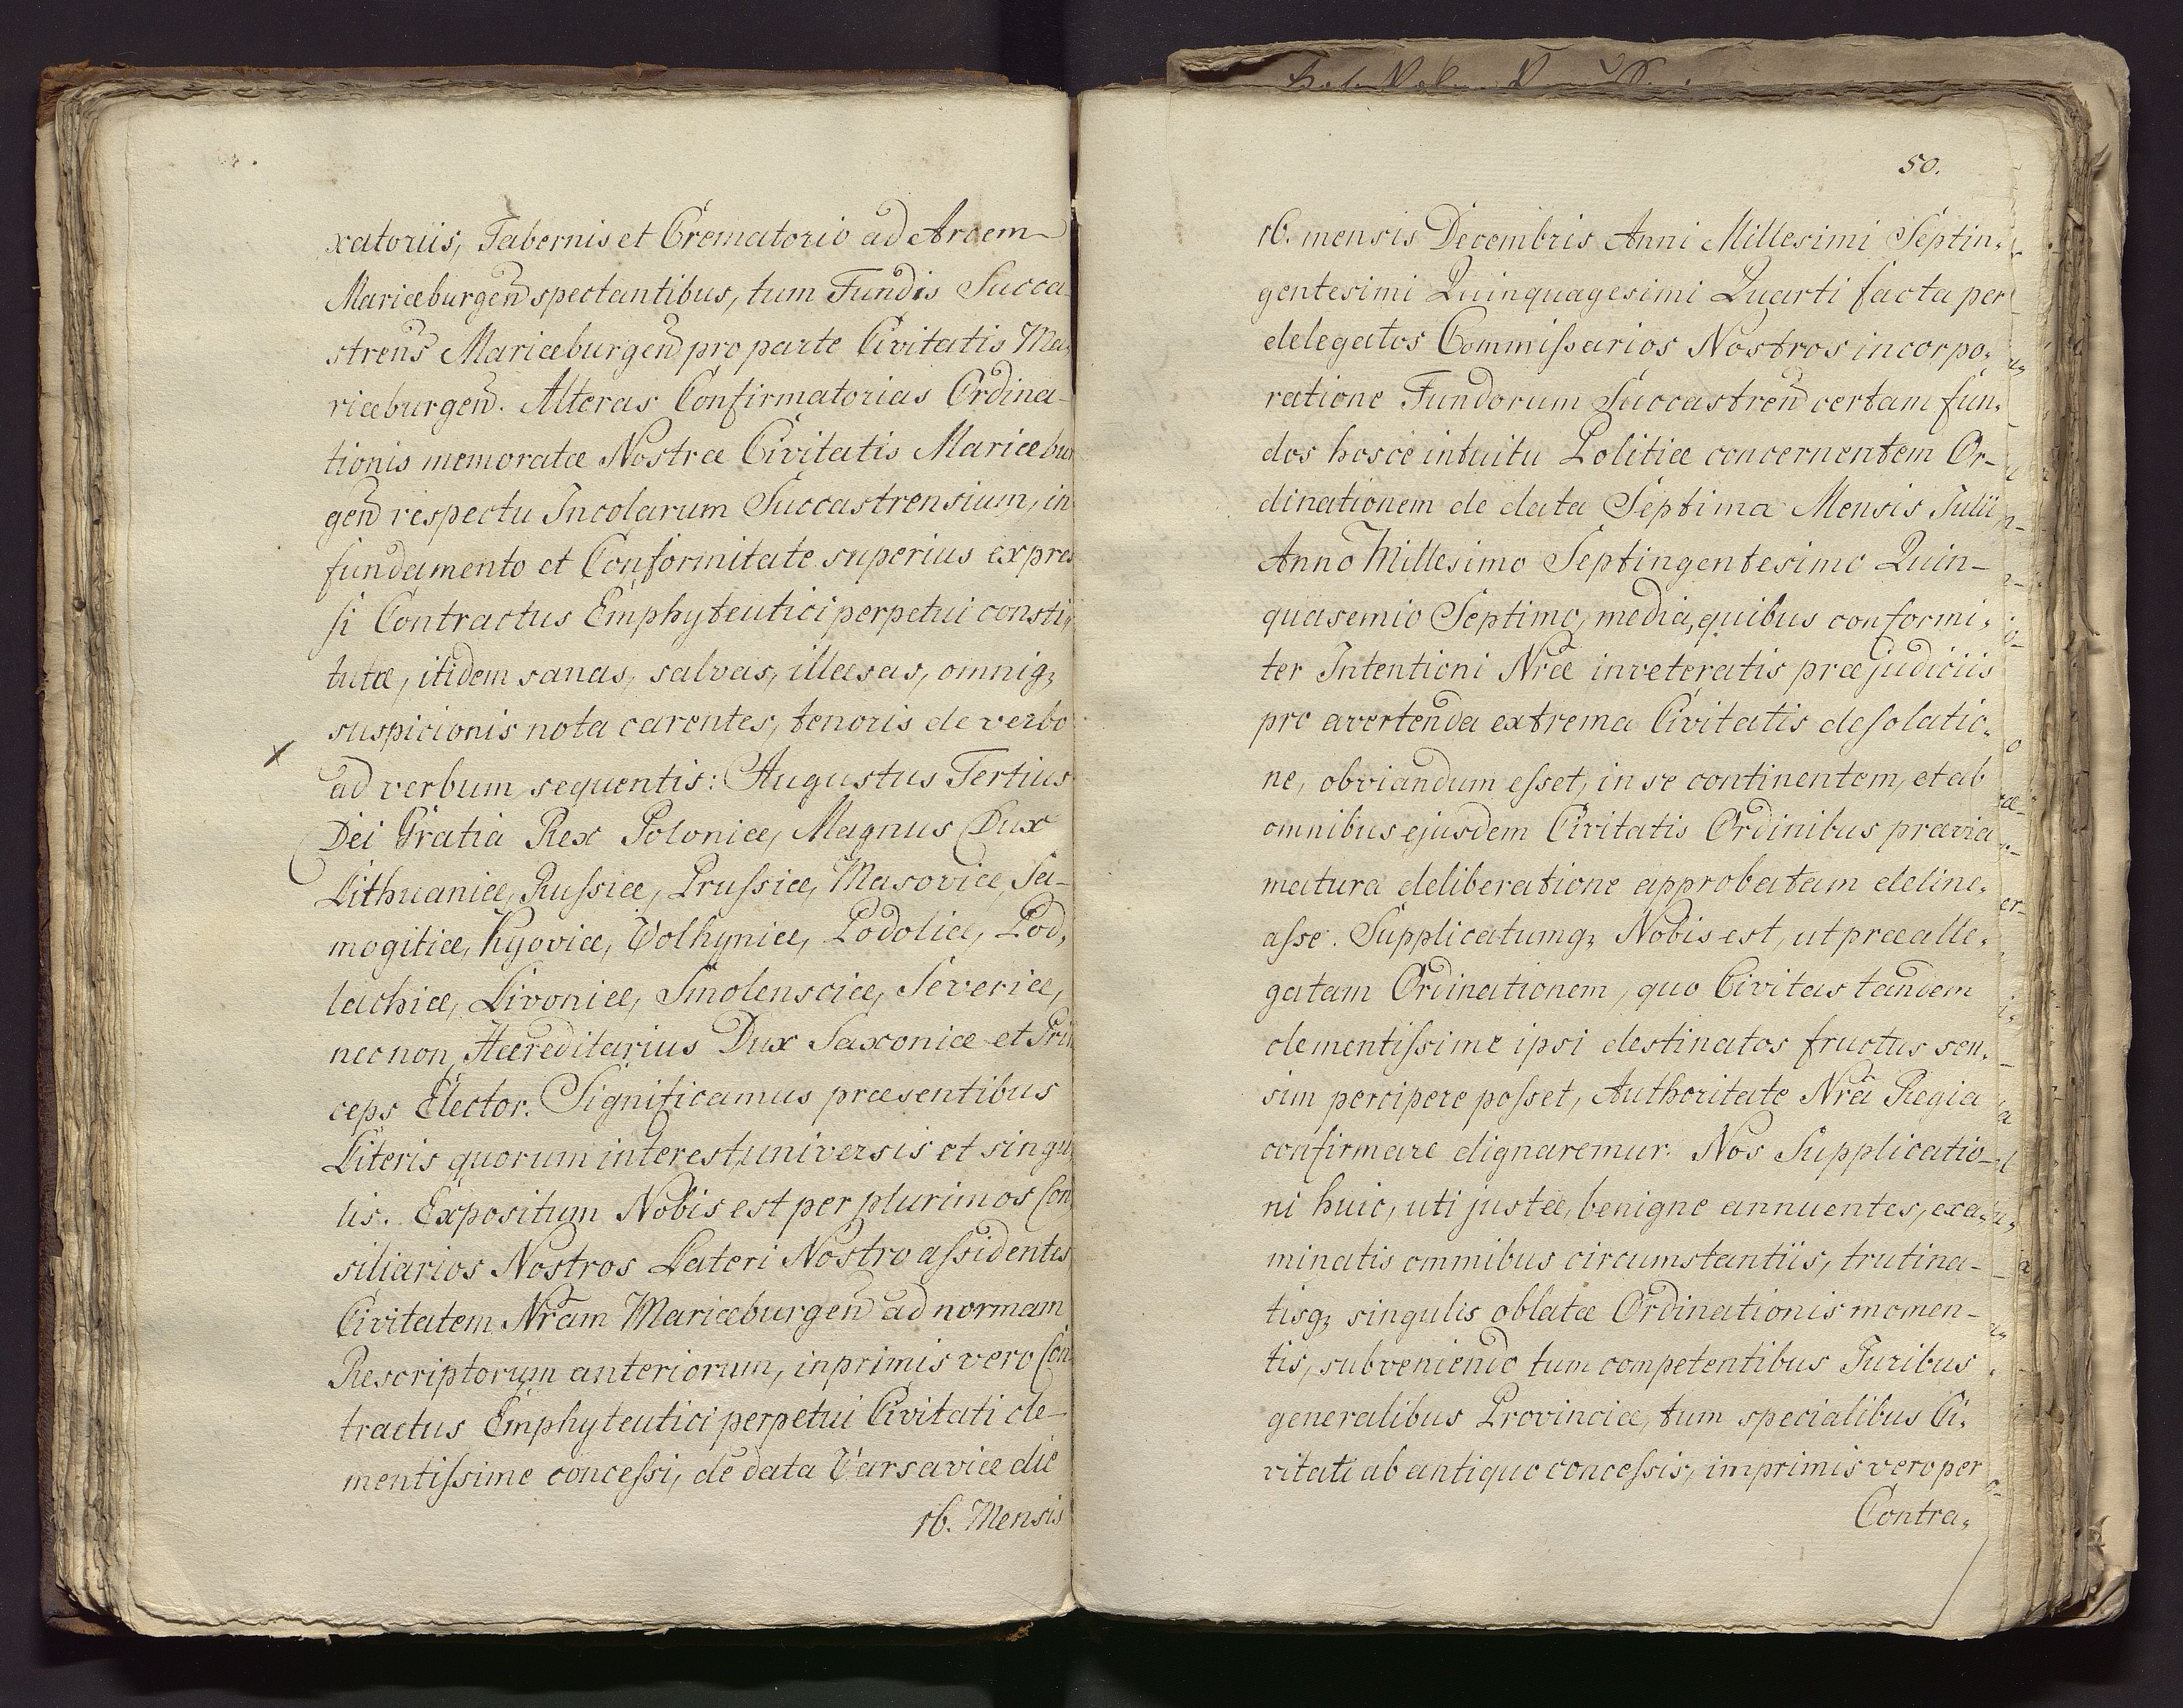 xatoriis, Tabernis et Crematorio ad Arcem
Mariæburgen̄ spectantibus, tum Fundis Succa-
stren̄s Mariæburgen̄ pro parte Civitatis Ma-
riæburgen̄. Alteras Confirmatorias Ordina-
tionis memoratæ Nostræ Civitatis Mariæbur
gen̄ respectu Incolarum Succastrensium, in
fundamento et Conformitate superius expres
si Contractus Emphyteutici perpetui consti,
tutæ, itidem sanas, salvas, illæsas, omniq;
suspicionis nota carentes, tenoris de verbo
ad verbum sequentis: Augustus Tertius
Dei Gratia Rex Poloniæ, Magnus Dux
Lithuaniæ, Russiæ, Prussiæ, Masoviæ, Sa-
mogitiæ, Kyoviæ, Volhyniæ, Podoliæ, Pod,
lachiæ, Livoniæ, Smolensciæ, Severiæ,
necnon Hæreditarius Dux Saxoniæ et Prin
ceps Elector. Significamus præsentibus
Literis quorum interest, universis et singu
lis. Expositum Nobis est per plurimos Con
siliarios Nostros Lateri Nostro assidentes
Civitatem Nr̄am Mariæburgen̄ ad normam
Rescriptorum anteriorum, inprimis vero Con
tractus Emphyteutici perpetui Civitati cle-
mentissime concessi, de data Varsaviæ die
16. Mensis
50.
16. mensis Decembris Anni Millesimi Septin,
gentesimi Quinquagesimi Quarti facta per
delegatos Commissarios Nostros incorpo,
ratione Fundorum Succastren̄ certam fun,
dos hosce intuitu Politiæ concernentem Or-
dinationem de data Septima Mensis Julii
Anno Millesimo Septingentesimo Quin-
quasemio Septimo, media, quibus conformi,
ter Intentioni Nr̄æ inveteratis præjudiciis
pro avertenda extrema Civitatis desolatio,
ne, obviandum esset, in se continentem, et ab
omnibus ejusdem Civitatis Ordinibus prævia
matura deliberatione approbatam deline,
asse. Supplicatumq; Nobis est, ut præalle,
gatam Ordinationem, quo Civitas tandem
clementissime ipsi destinatos fructus sen,
sim percipere posset, Authoritate Nr̄a Regia
confirmare dignaremur. Nos Supplicatio-
ni huic, uti justæ, benigne annuentes, exa,
minatis omnibus circumstantiis, trutina-
tisq; singulis oblatæ Ordinationis momen-
tis, subveniendo tum competentibus Juribus
generalibus Provinciæ, tum specialibus Ci,
vitati ab antiquo concessis, imprimis vero per
Contra,